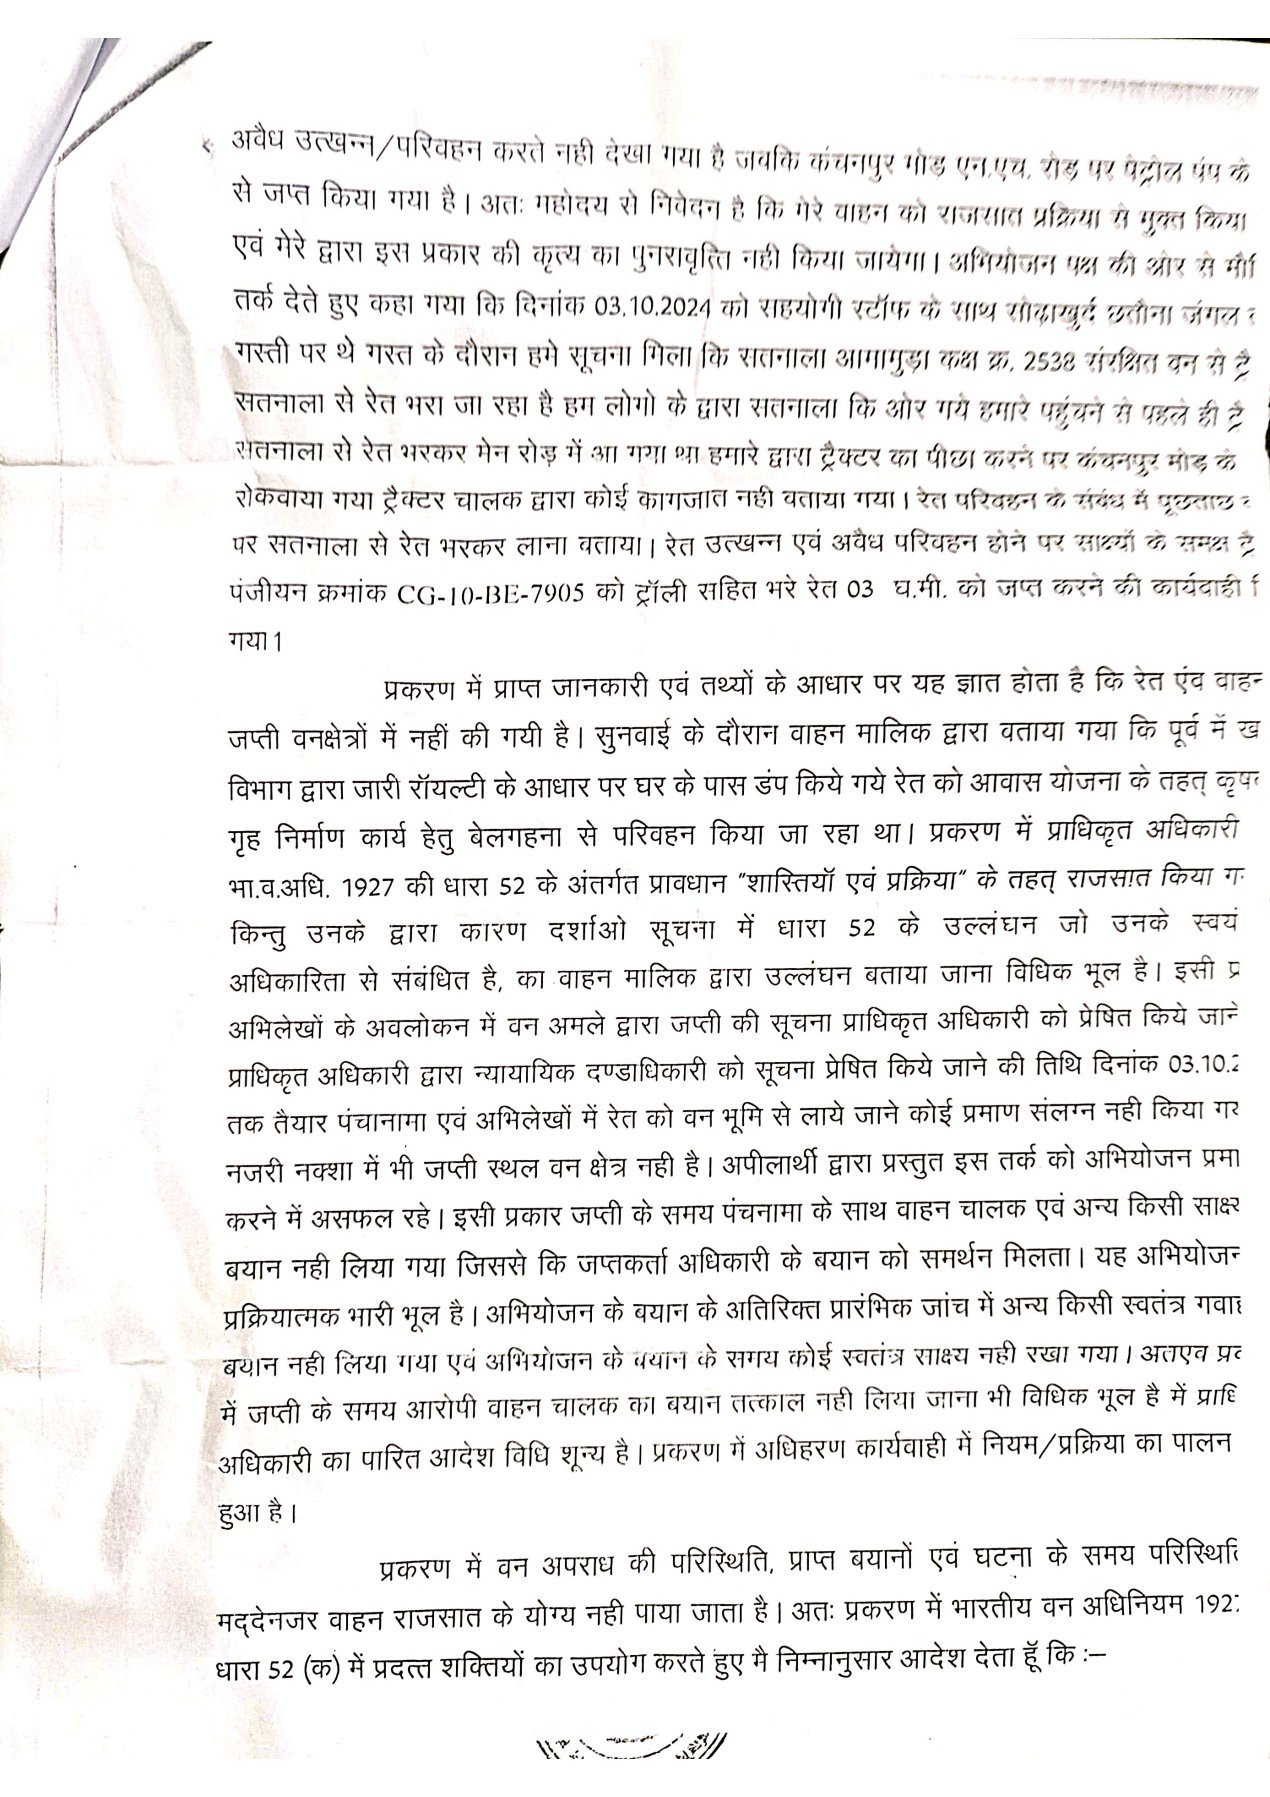 अवैध उत्खन्न/परिवहन करते नही देखा गया है जबकि कंचनपुर मोड़ एन.एच. रोड़ पर पेट्रोल पंप के
से जप्त किया गया है। अतः महोदय से निवेदन है कि मेरे वाहन को राजसात प्रक्रिया से मुक्त किया
एवं मेरे द्वारा इस प्रकार की कृत्य का पुनरावृत्ति नही किया जायेगा। अभियोजन पक्ष की ओर से
तर्क देते हुए कहा गया कि दिनांक 03.10.2024 को सहयोगी स्टॉफ के साथ सोढ़ाखुर्द छतौना जंगल
गस्ती पर थे गस्त के दौरान हमे सूचना मिला कि सतनाला आमामुड़ा कक्ष क्र. 2538 संरक्षित वन से
सतनाला से रेत भरा जा रहा है हम लोगो के द्वारा सतनाला कि ओर गये हमारे पहुंचने से पहले ही
सतनाला से रेत भरकर मेन रोड़ में आ गया था हमारे द्वारा ट्रैक्टर का पीछा करने पर कंचनपुर मोड़ के
रोकवाया गया ट्रैक्टर चालक द्वारा कोई कागजात नही बताया गया। रेत परिवहन के संबंध में पूछताछ
पर सतनाला से रेत भरकर लाना बताया। रेत उत्खन्न एवं अवैध परिवहन होने पर साक्ष्यों के समक्ष
पंजीयन क्रमांक CG-10-BE-7905 को ट्रॉली सहित भरे रेत 03 घ.मी. को जप्त करने की कार्यवाही
गया1
प्रकरण में प्राप्त जानकारी एवं तथ्यों के आधार पर यह ज्ञात होता है कि रेत एंव वाहन
जप्ती वनक्षेत्रों में नहीं की गयी है। सुनवाई के दौरान वाहन मालिक द्वारा बताया गया कि पूर्व में
विभाग द्वारा जारी रॉयल्टी के आधार पर घर के पास डंप किये गये रेत को आवास योजना के तहत्
गृह निर्माण कार्य हेतु बेलगहना से परिवहन किया जा रहा था। प्रकरण में प्राधिकृत अधिकारी
भा.व.अधि. 1927 की धारा 52 के अंतर्गत प्रावधान "शास्तियॉ एवं प्रक्रिया" के तहत् राजसात किया
किन्तु उनके द्वारा कारण दर्शाओ सूचना में धारा 52 के उल्लंघन जो उनके स्वयं
अधिकारिता से संबंधित है, का वाहन मालिक द्वारा उल्लंघन बताया जाना विधिक भूल है। इसी
अभिलेखों के अवलोकन में वन अमले द्वारा जप्ती की सूचना प्राधिकृत अधिकारी को प्रेषित किये जाने
प्राधिकृत अधिकारी द्वारा न्यायायिक दण्डाधिकारी को सूचना प्रेषित किये जाने की तिथि दिनांक 03.10.2
तक तैयार पंचानामा एवं अभिलेखों में रेत को वन भूमि से लाये जाने कोई प्रमाण संलग्न नही किया
नजरी नक्शा में भी जप्ती स्थल वन क्षेत्र नही है। अपीलार्थी द्वारा प्रस्तुत इस तर्क को अभियोजन
करने में असफल रहे। इसी प्रकार जप्ती के समय पंचनामा के साथ वाहन चालक एवं अन्य किसी
बयान नही लिया गया जिससे कि जप्तकर्ता अधिकारी के बयान को समर्थन मिलता। यह अभियोजन
प्रक्रियात्मक भारी भूल है। अभियोजन के बयान के अतिरिक्त प्रारंभिक जांच में अन्य किसी स्वतंत्र
बयान नही लिया गया एवं अभियोजन के बयान के समय कोई स्वतंत्र साक्ष्य नही रखा गया। अतएव
में जप्ती के समय आरोपी वाहन चालक का बयान तत्काल नही लिया जाना भी विधिक भूल है में
अधिकारी का पारित आदेश विधि शून्य है। प्रकरण में अधिहरण कार्यवाही में नियम/प्रक्रिया का पालन
हुआ है।
प्रकरण में वन अपराध की परिस्थिति, प्राप्त बयानों एवं घटना के समय परिस्थिति
मद्देनजर वाहन राजसात के योग्य नही पाया जाता है। अतः प्रकरण में भारतीय वन अधिनियम 1927
धारा 52 (क) में प्रदत्त शक्तियों का उपयोग करते हुए मै निम्नानुसार आदेश देता हूॅ कि :–